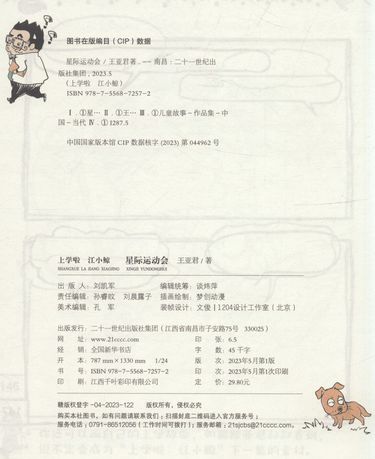 图书在版编目(CIP)数据
星际运动会 / 王亚君著. -- 南昌:二十一世纪出
版社集团, 2023.5
(上学啦 江小鲸)
ISBN 978-7-5568-7257-2
Ⅰ. ①星… Ⅱ. ①王… Ⅲ. ①儿童故事-作品集-中
国-当代 Ⅳ. ①I287.5
中国国家版本馆CIP数据核字(2023)第044962号
上学啦 江小鲸 星际运动会 王亚君/著
SHANGXUE LA JIANG XIAOJING XINGJI YUNDONGHUI
出 版 人:刘凯军 编辑统筹:谈炜萍
责任编辑:孙睿旼 刘晨露子 插画绘制:梦创动漫
美术编辑:孔 军 装帧设计:文俊|1204设计工作室(北京)
出版发行:二十一世纪出版社集团(江西省南昌市子安路75号 330025)
网 址:www.21cccc.com 印 张:6.5
经 销:全国新华书店 字 数:45千字
开 本:787 mm×1330 mm 1/24 版 次:2023年5月第1版
书 号:ISBN 978-7-5568-7257-2 印 次:2023年5月第1次印刷
印 刷:江西千叶彩印有限公司 定 价:29.80元
赣版权登字-04-2023-122 版权所有,侵权必究
购买本社图书,如有问题请联系我们:扫描封底二维码进入官方服务号;
服务电话:0791-86512056(工作时间可拨打);服务邮箱:21sjcbs@21cccc.com.